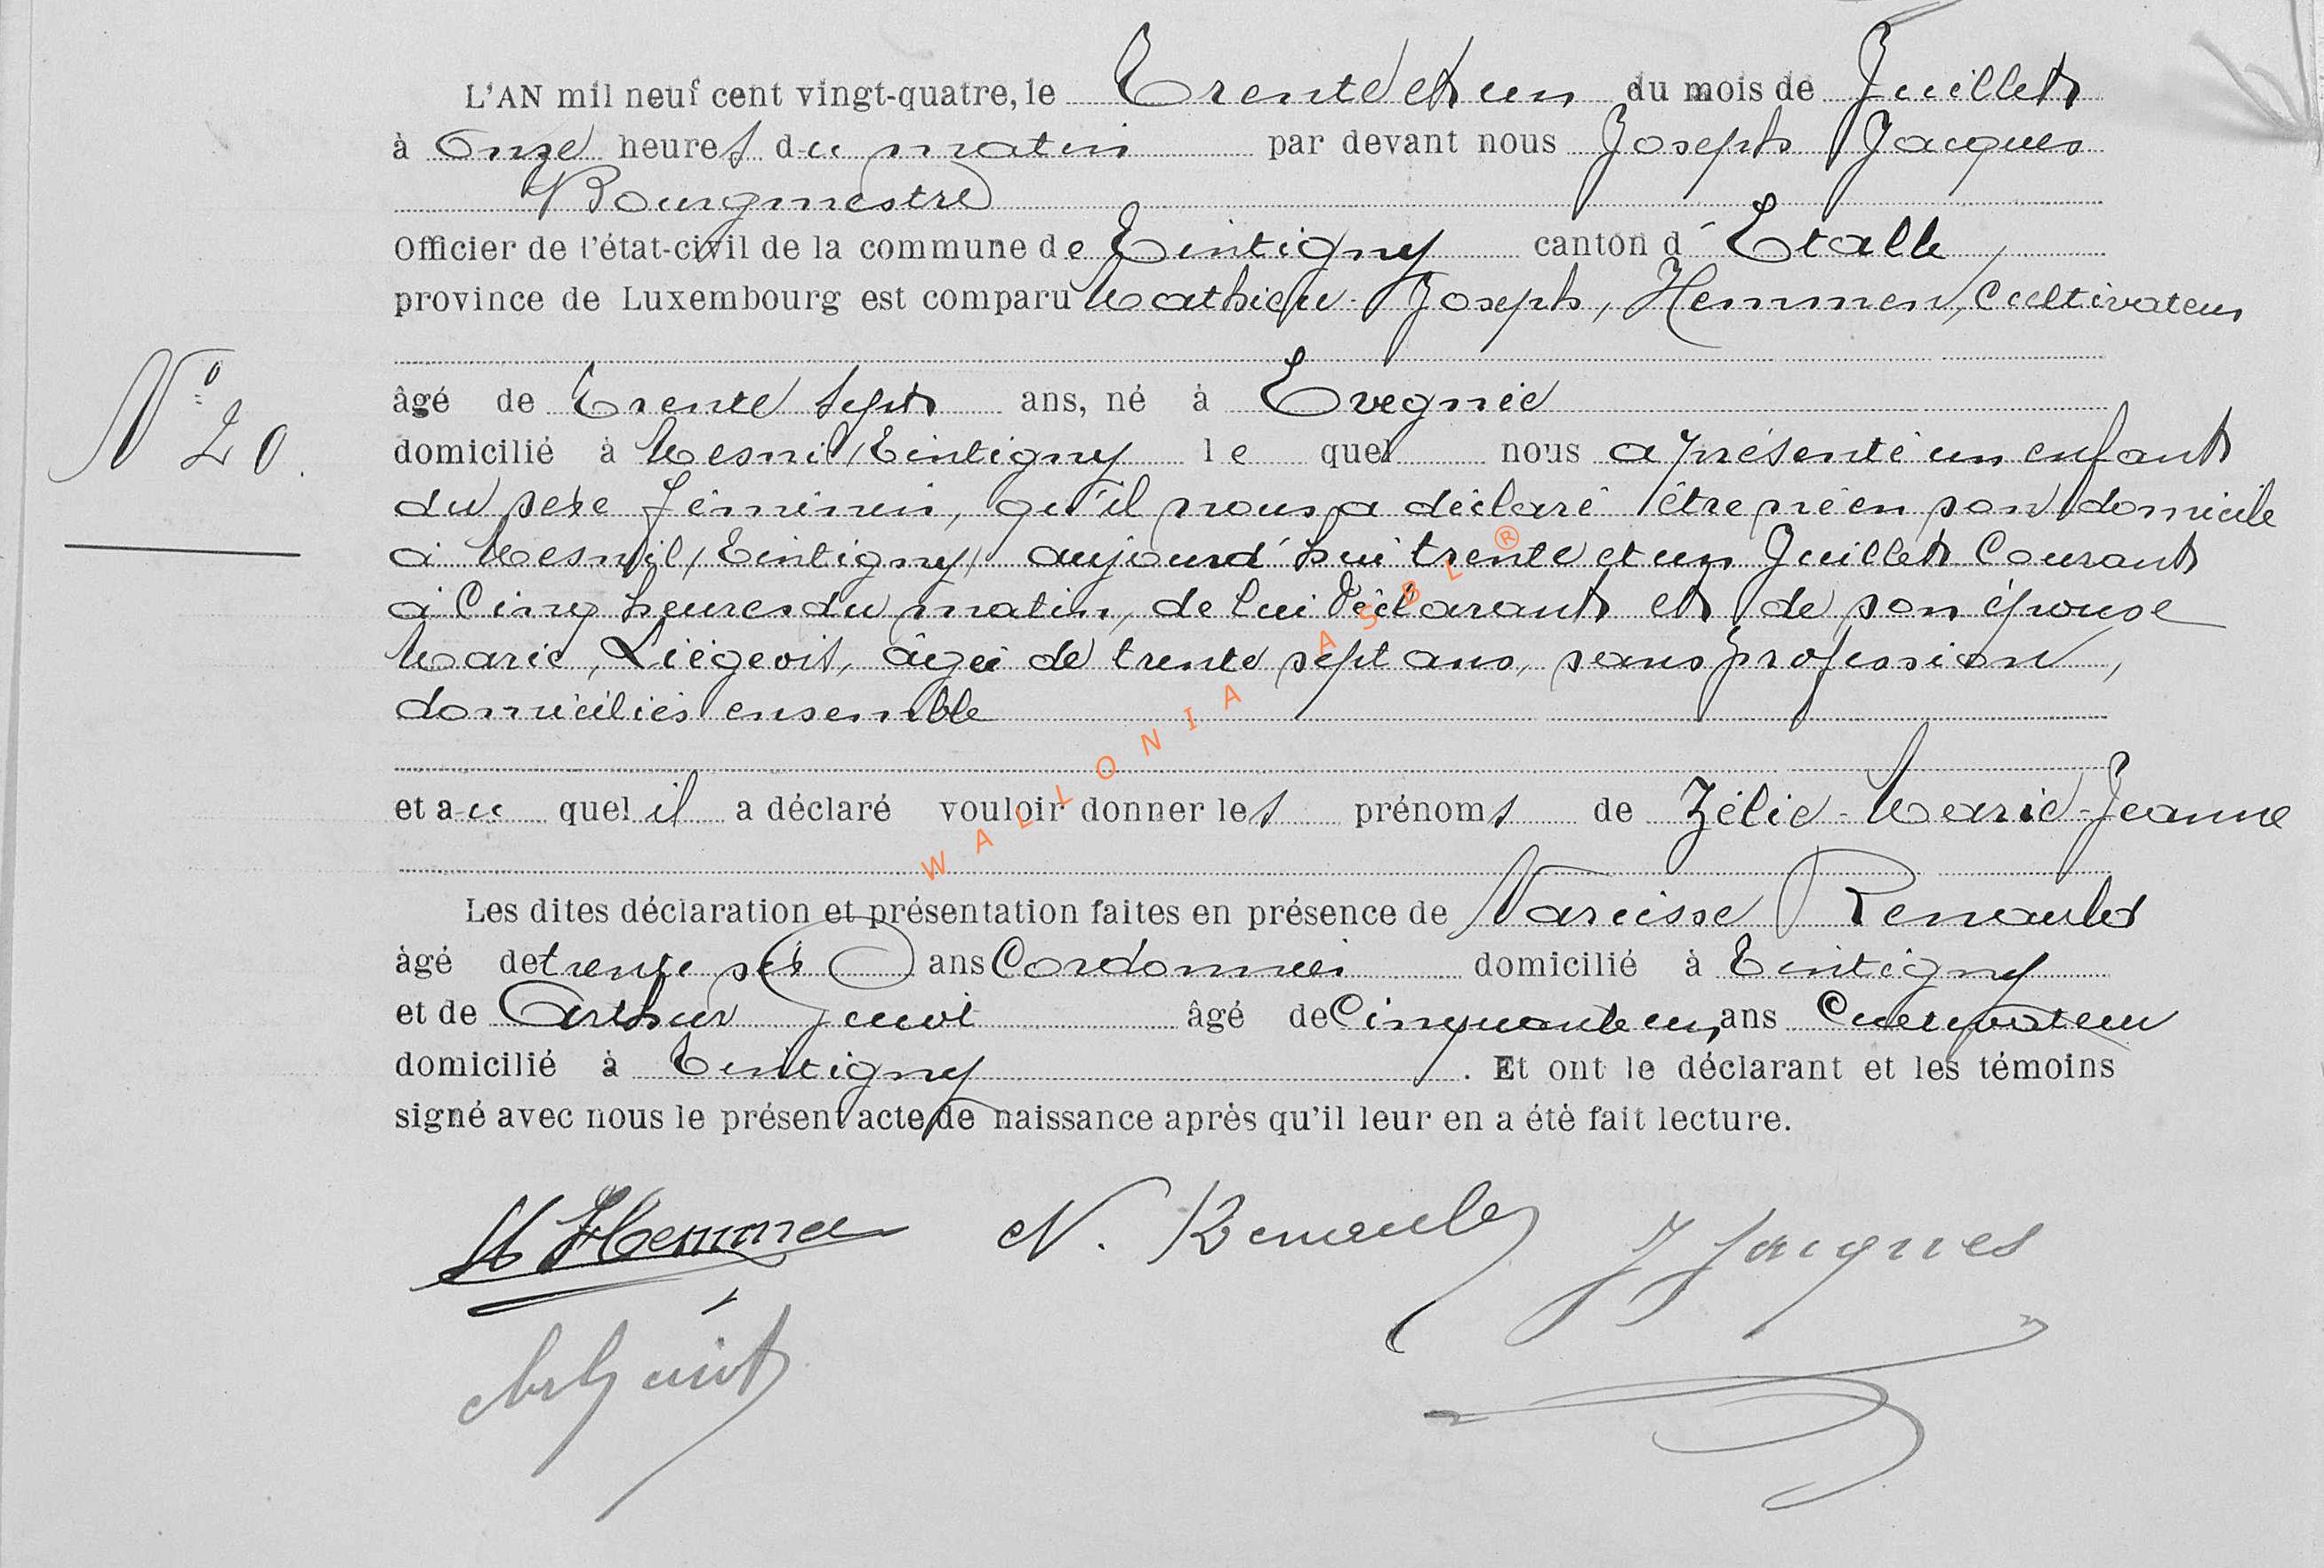 L'AN mil neuf cent vingt-quatre, le Trente et un du mois de Juillet
à Onze heures du matin par devant nous Joseph Jacques
Bourgmestre
Officier de l'état-civil de la commune de Tintigny canton d'Etalle,
province de Luxembourg est comparu Mathieu-Joseph, Hemmen, Cultivateur
âgé de Trente sept ans, né à Evegnée
N° 20.
domicilié à Mesnil, Tintigny le quel nous a présenté un enfant
du sexe féminin, qu'il nous a déclaré être né en son domicile
à Mesnil, Tintigny, aujourd'hui trente et un Juillet Courant
à Cinq heures du matin, de lui Déclarant et de son épouse
Marie, Liégeois, âgée de trente sept ans, sans profession,
domiciliés ensemble
et au quel il a déclaré vouloir donner les prénoms de Zélie-Marie-Jeanne
Les dites déclaration et présentation faites en présence de Narcisse Renauld
âgé de trente six ans Cordonnier domicilié à Tintigny
et de Arthur âgé de Cinquante un, ans Cultivateur
domicilié à Tintigny. Et ont le déclarant et les témoins
signé avec nous le présent acte de naissance après qu'il leur en a été fait lecture.
M Hemmen N. Renauld J Jacques
WALLONIA ASBL ®